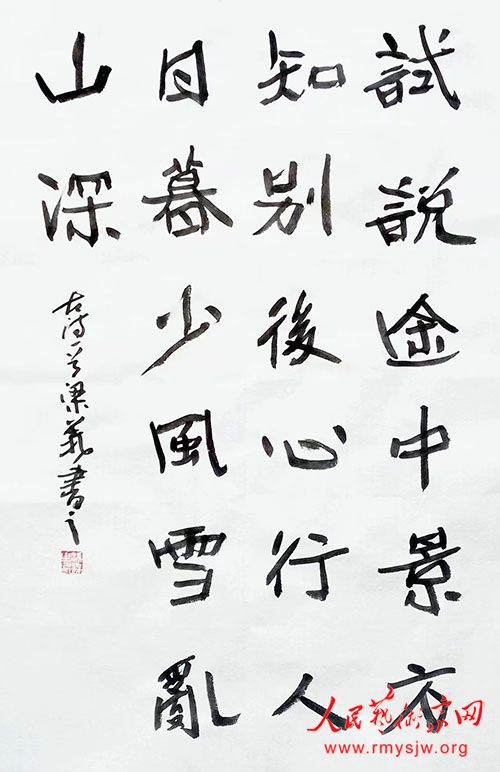 試説途中景方
知别後心行人
日暮少風雪亂
山深
古诗一首梁義書之
人民藝術家网
www.rmysjw.org